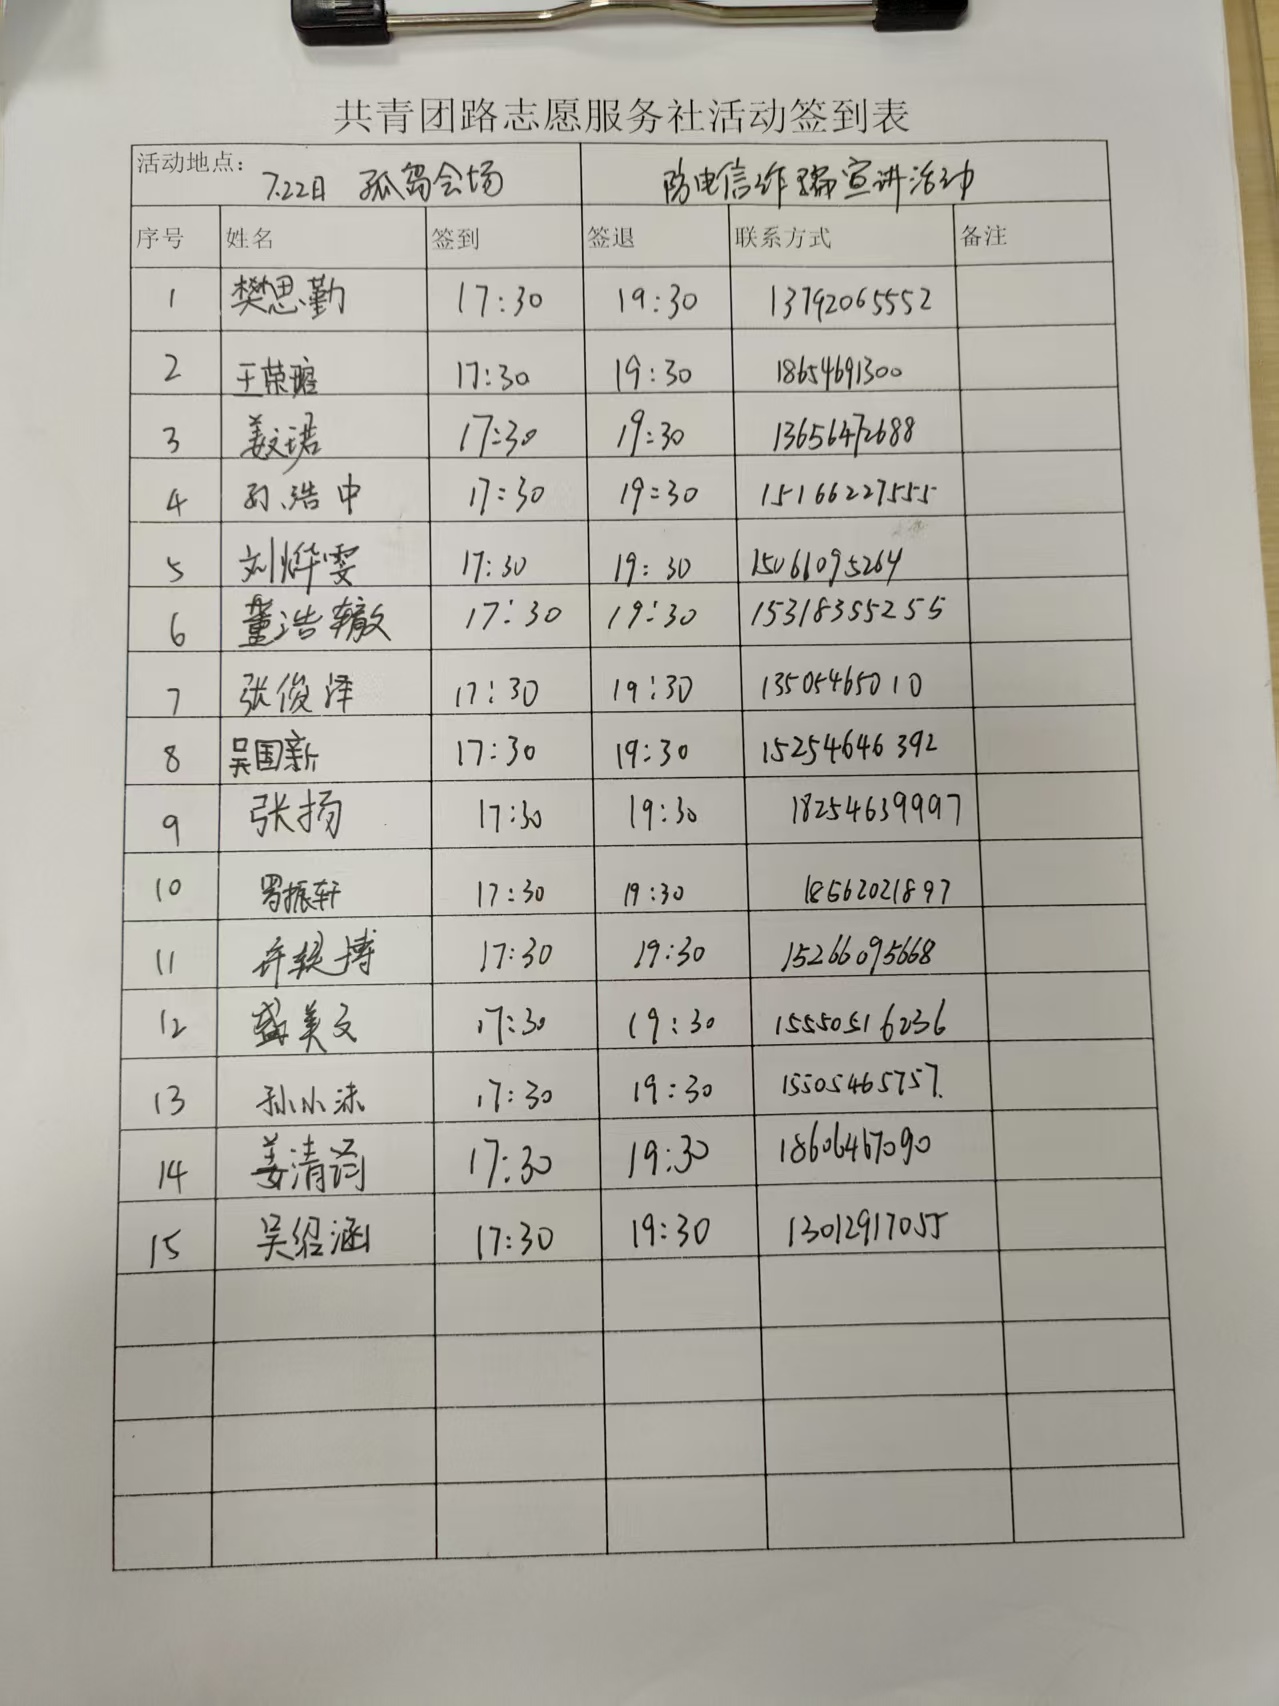 共青团路志愿服务社活动签到表
活动地点: 7.22日 孤岛会场 防电信诈骗宣讲活动
序号 姓名 签到 签退 联系方式 备注
1 樊思勤 17:30 19:30 13792065552
2 王荣瑢 17:30 19:30 18654691300
3 姜文珺 17:30 19:30 13656472688
4 孙浩中 17:30 19:30 15166227555
5 刘烨雯 17:30 19:30 15061095264
6 董浩辙 17:30 19:30 15318355255
7 张俊泽 17:30 19:30 13505465010
8 吴国新 17:30 19:30 15254646392
9 张扬 17:30 19:30 18254639997
10 罗振轩 17:30 19:30 18562021897
11 许 博 17:30 19:30 15266095668
12 盛美文 17:30 19:30 15550516236
13 孙小沫 17:30 19:30 15505465757.
14 姜清 17:30 19:30 18606467090
15 吴绍涵 17:30 19:30 13012917055